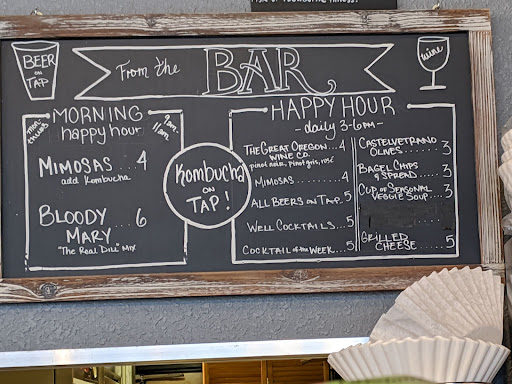 BEER
ON
TAP
From the BAR
wine
MORNING
happy hour
mon-thurs
9am-
11am
MIMOSAS...4
add Kombucha
BLOODY....6
MARY
"The Real Dill" Mix
Kombucha
ON
TAP!
HAPPY HOUR
-daily 3-6pm-
THE GREAT OREGON...4
WINE CO.
pinot noir, Pinot gris, rosé
MIMOSAS......4
ALL BEERS ON TAP.5
WELL COCKTAILS...5
COCKTAIL of the WEEK...5
CASTELVETRANO
OLIVES.......3
BAGEL CHIPS
& SPREAD.....3
CUP OF SEASONAL
VEGGIE SOUP...3
GRILLED
CHEESE......5